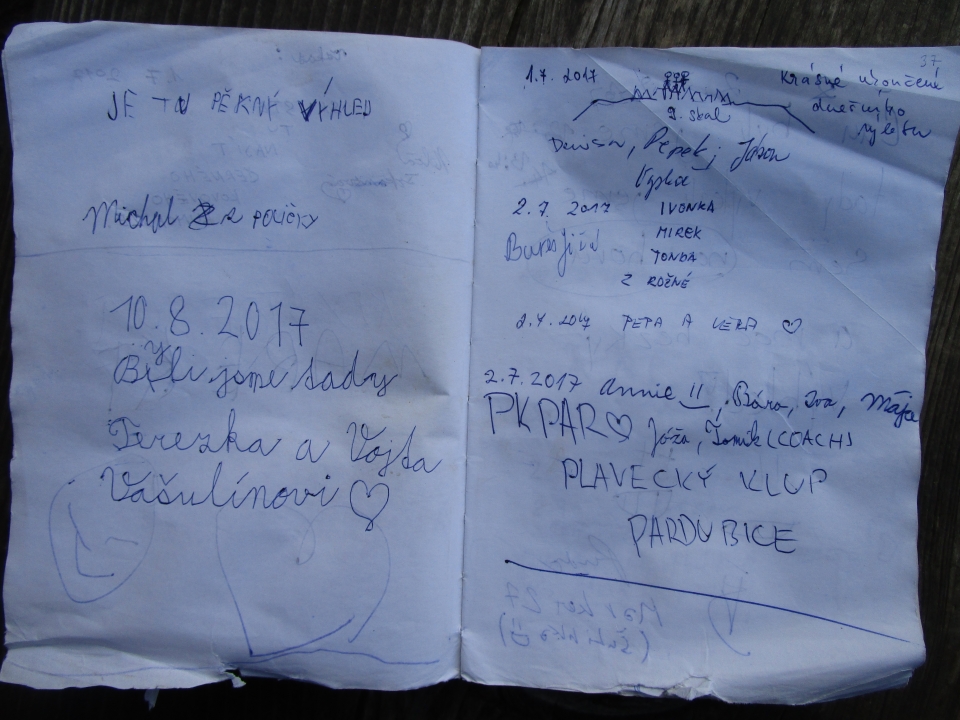 JE TU PĚKNÝ VÝHLED
Michal Z POLIČKY
10.8.2017
Byli jsme tady
Terezka a Vojta
Vašulínovi ♡
37
1.7.2017
Krásné ukončené
dnešního
výletu
9. skal
Denisa, Pepek,
2.7.2017
IVONKA
MIREK
TONDA
Z ROŽNÉ
2017 PEPA A VĚRA ♡
2.7.2017 Annie II, Bára, Iva, Mája
PKPAR♡ Jóža, Tomík (COACH)
PLAVECKÝ KLUP
PARDUBICE